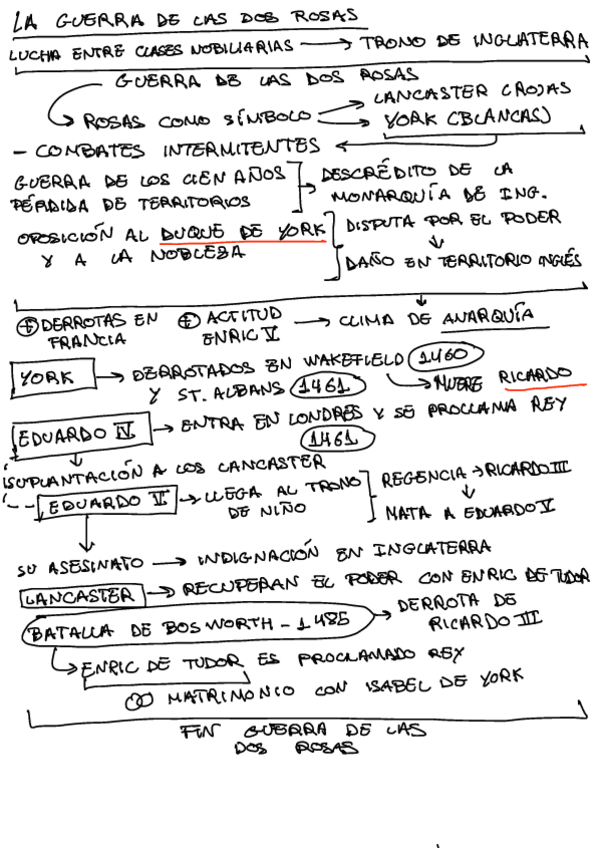 LA GUERRA DE LAS DOS ROSAS
LUCHA ENTRE CLASES NOBILIARIAS → TRONO DE INGLATERRA
GUERRA DE LAS DOS ROSAS
→ ROSAS COMO SÍMBOLO → LANCASTER (ROJAS
→ YORK (BLANCAS)
- COMBATES INTERMITENTES ←
GUERRA DE LOS CIEN AÑOS
PÉRDIDA DE TERRITORIOS
→ DESCRÉDITO DE LA
MONARQUÍA DE ING.
OPOSICIÓN AL DUQUE DE YORK
Y A LA NOBLEZA
DISPUTA POR EL PODER
↓
DAÑO EN TERRITORIO INGLÉS
⊕ DERROTAS EN
FRANCIA
⊕ ACTITUD
ENRIC V
→ CLIMA DE ANARQUÍA
YORK → DERROTADOS EN WAKEFIELD 1460
Y ST. ALBANS 1461
→ MUERE RICARDO
EDUARDO IV → ENTRA EN LONDRES Y SE PROCLAMA REY
1461
↓
SUPLANTACIÓN A LOS LANCASTER
EDUARDO V → LLEGA AL TRONO
DE NIÑO
REGENCIA → RICARDO III
↓
MATA A EDUARDO V
↓
SU ASESINATO → INDIGNACIÓN EN INGLATERRA
LANCASTER → RECUPERAN EL PODER CON ENRIC DE TUDOR
BATALLA DE BOSWORTH - 1485 → DERROTA DE
RICARDO III
→ ENRIC DE TUDOR ES PROCLAMADO REY
MATRIMONIO CON ISABEL DE YORK
FIN GUERRA DE LAS
DOS ROSAS